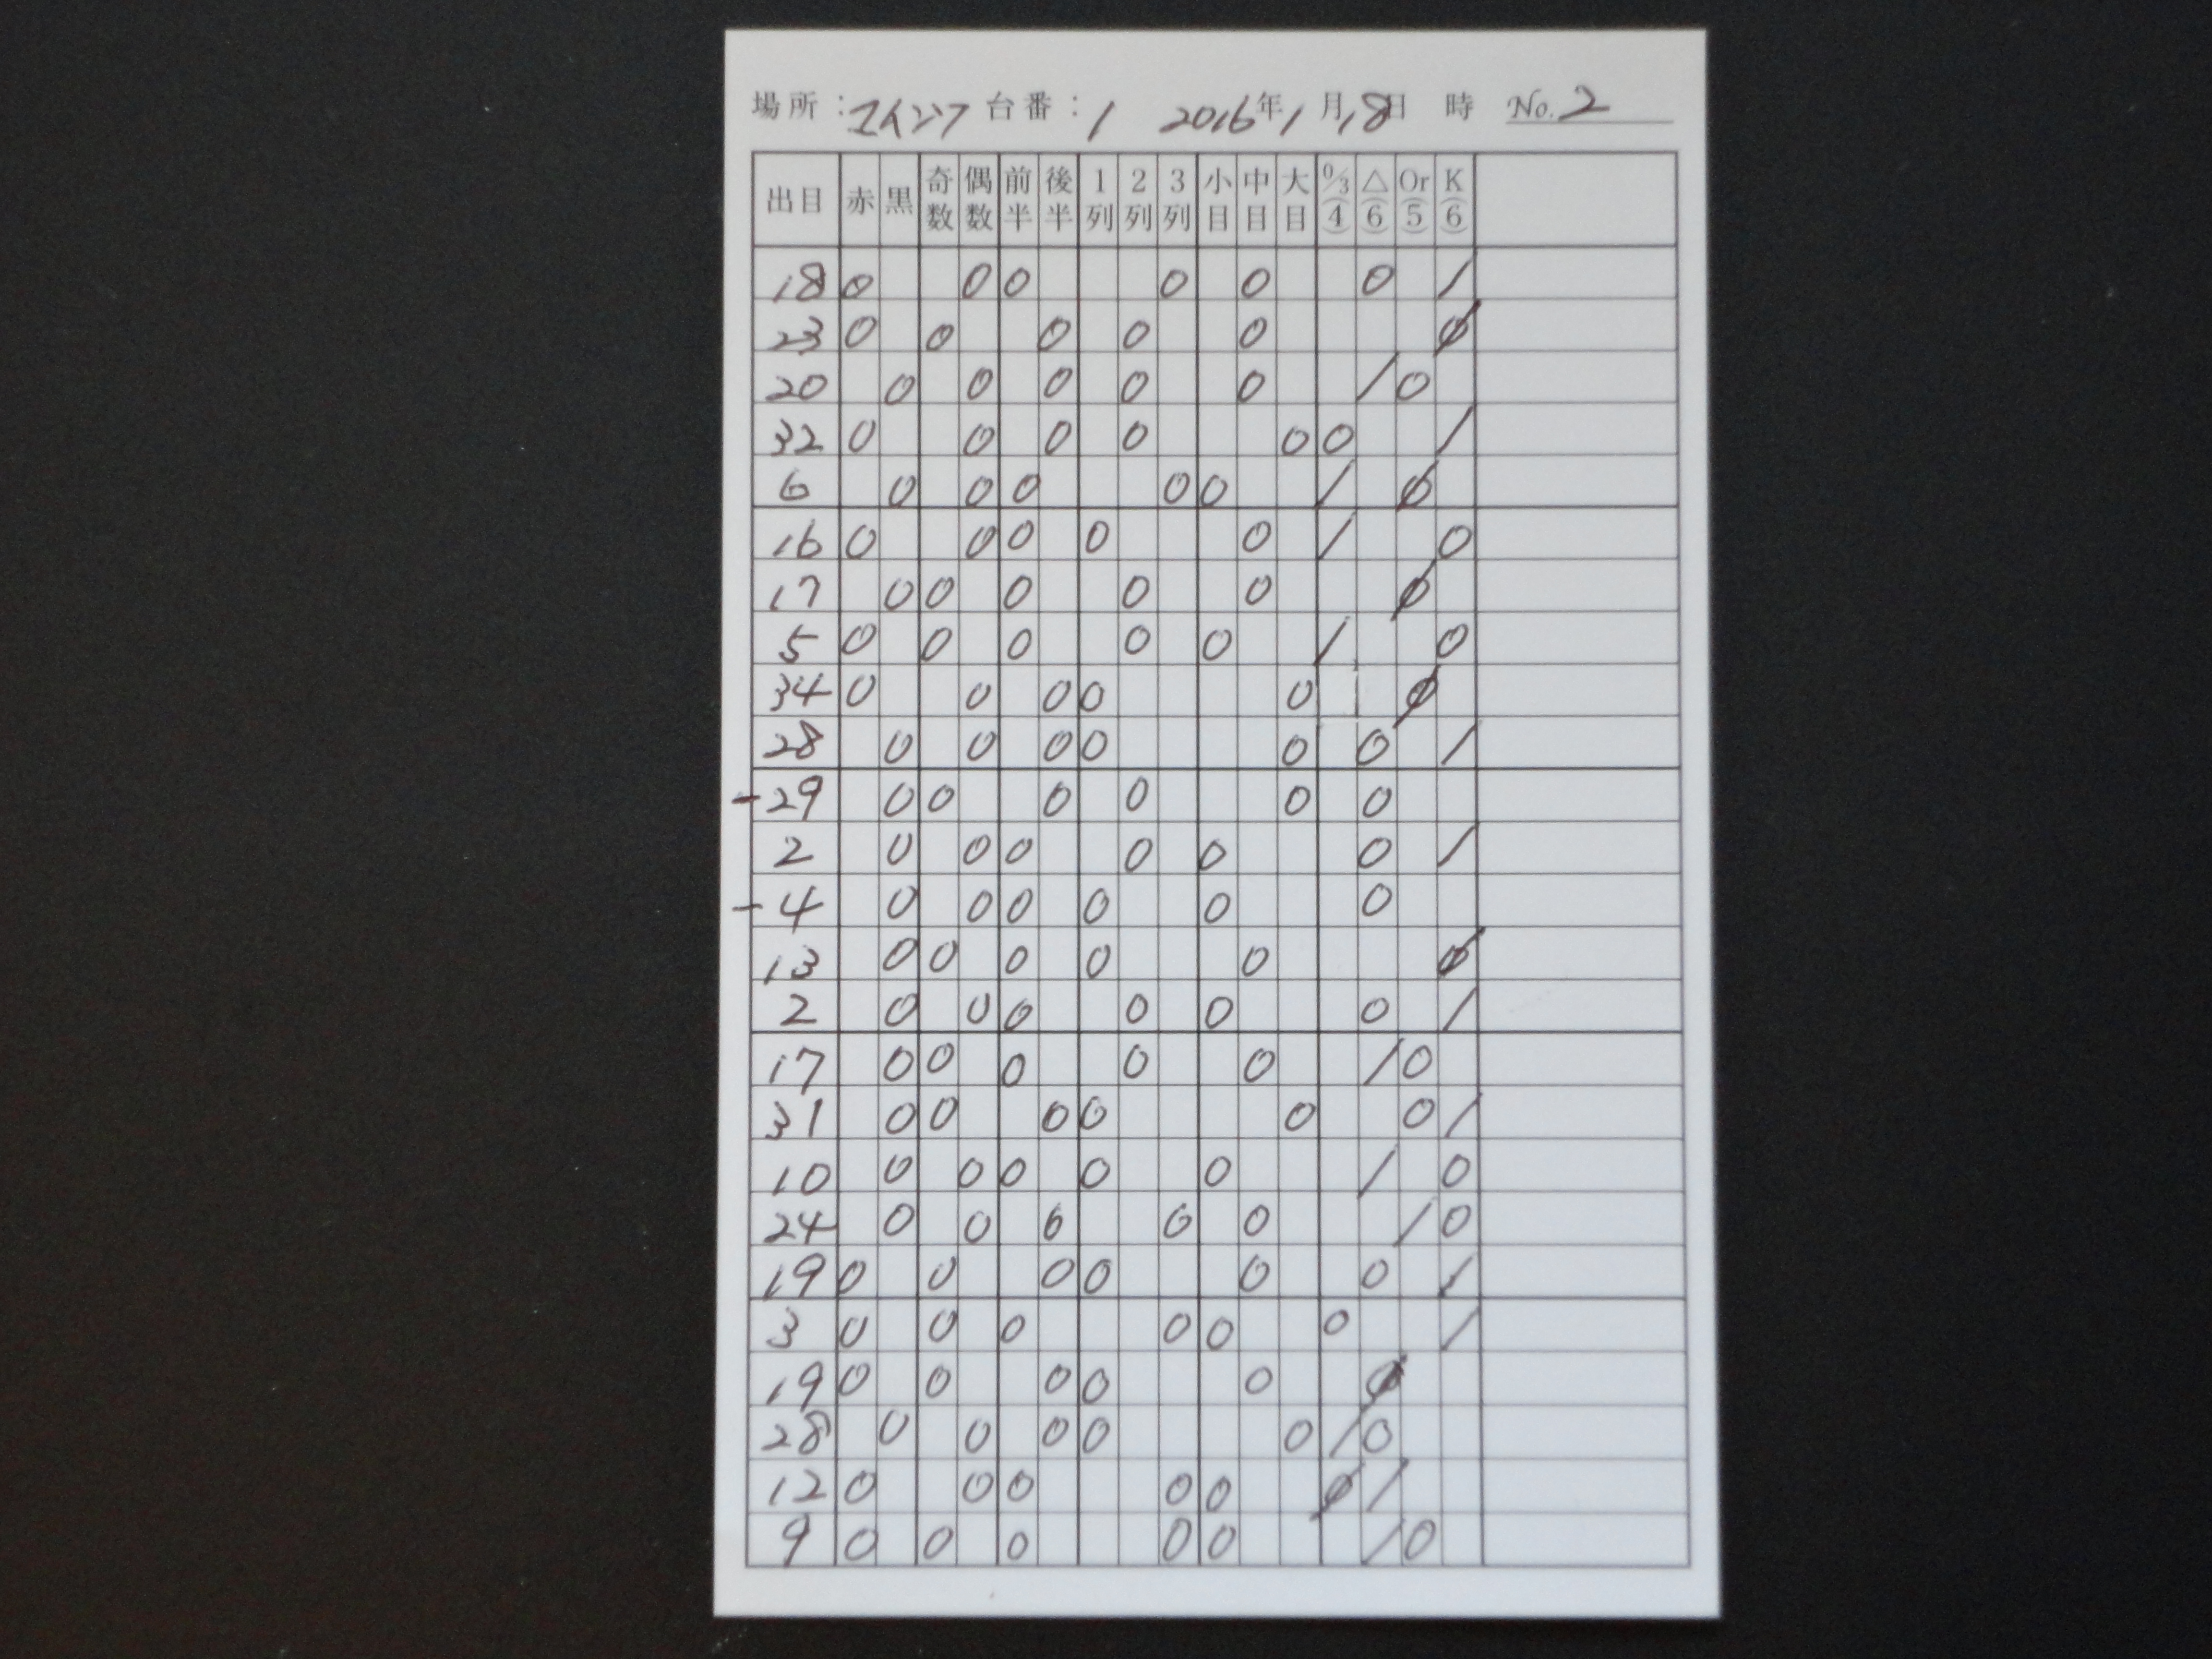 場所: 台番: 1 2016年 1月 18日 時 No. 2
出目 赤 黒 奇数 偶数 前半 後半 1列 2列 3列 小目 中目 大目 0/3(4) △(6) Or(5) K(6)
18 0 0 0 0 0 0 /
23 0 0 0 0 0 Ø
20 0 0 0 0 0 / 0
32 0 0 0 0 0 0 /
6 0 0 0 0 0 / Ø
16 0 0 0 0 0 / 0
17 0 0 0 0 0 Ø
5 0 0 0 0 0 / 0
34 0 0 0 0 0 Ø
28 0 0 0 0 0 0 /
-29 0 0 0 0 0 0
2 0 0 0 0 0 0 /
-4 0 0 0 0 0 0
13 0 0 0 0 0 Ø
2 0 0 0 0 0 0 /
17 0 0 0 0 0 / 0
31 0 0 0 0 0 0 /
10 0 0 0 0 0 / 0
24 0 0 0 0 0 / 0
19 0 0 0 0 0 0 /
3 0 0 0 0 0 0 /
19 0 0 0 0 0 Ø
28 0 0 0 0 0 / 0
12 0 0 0 0 0 Ø /
9 0 0 0 0 0 / 0